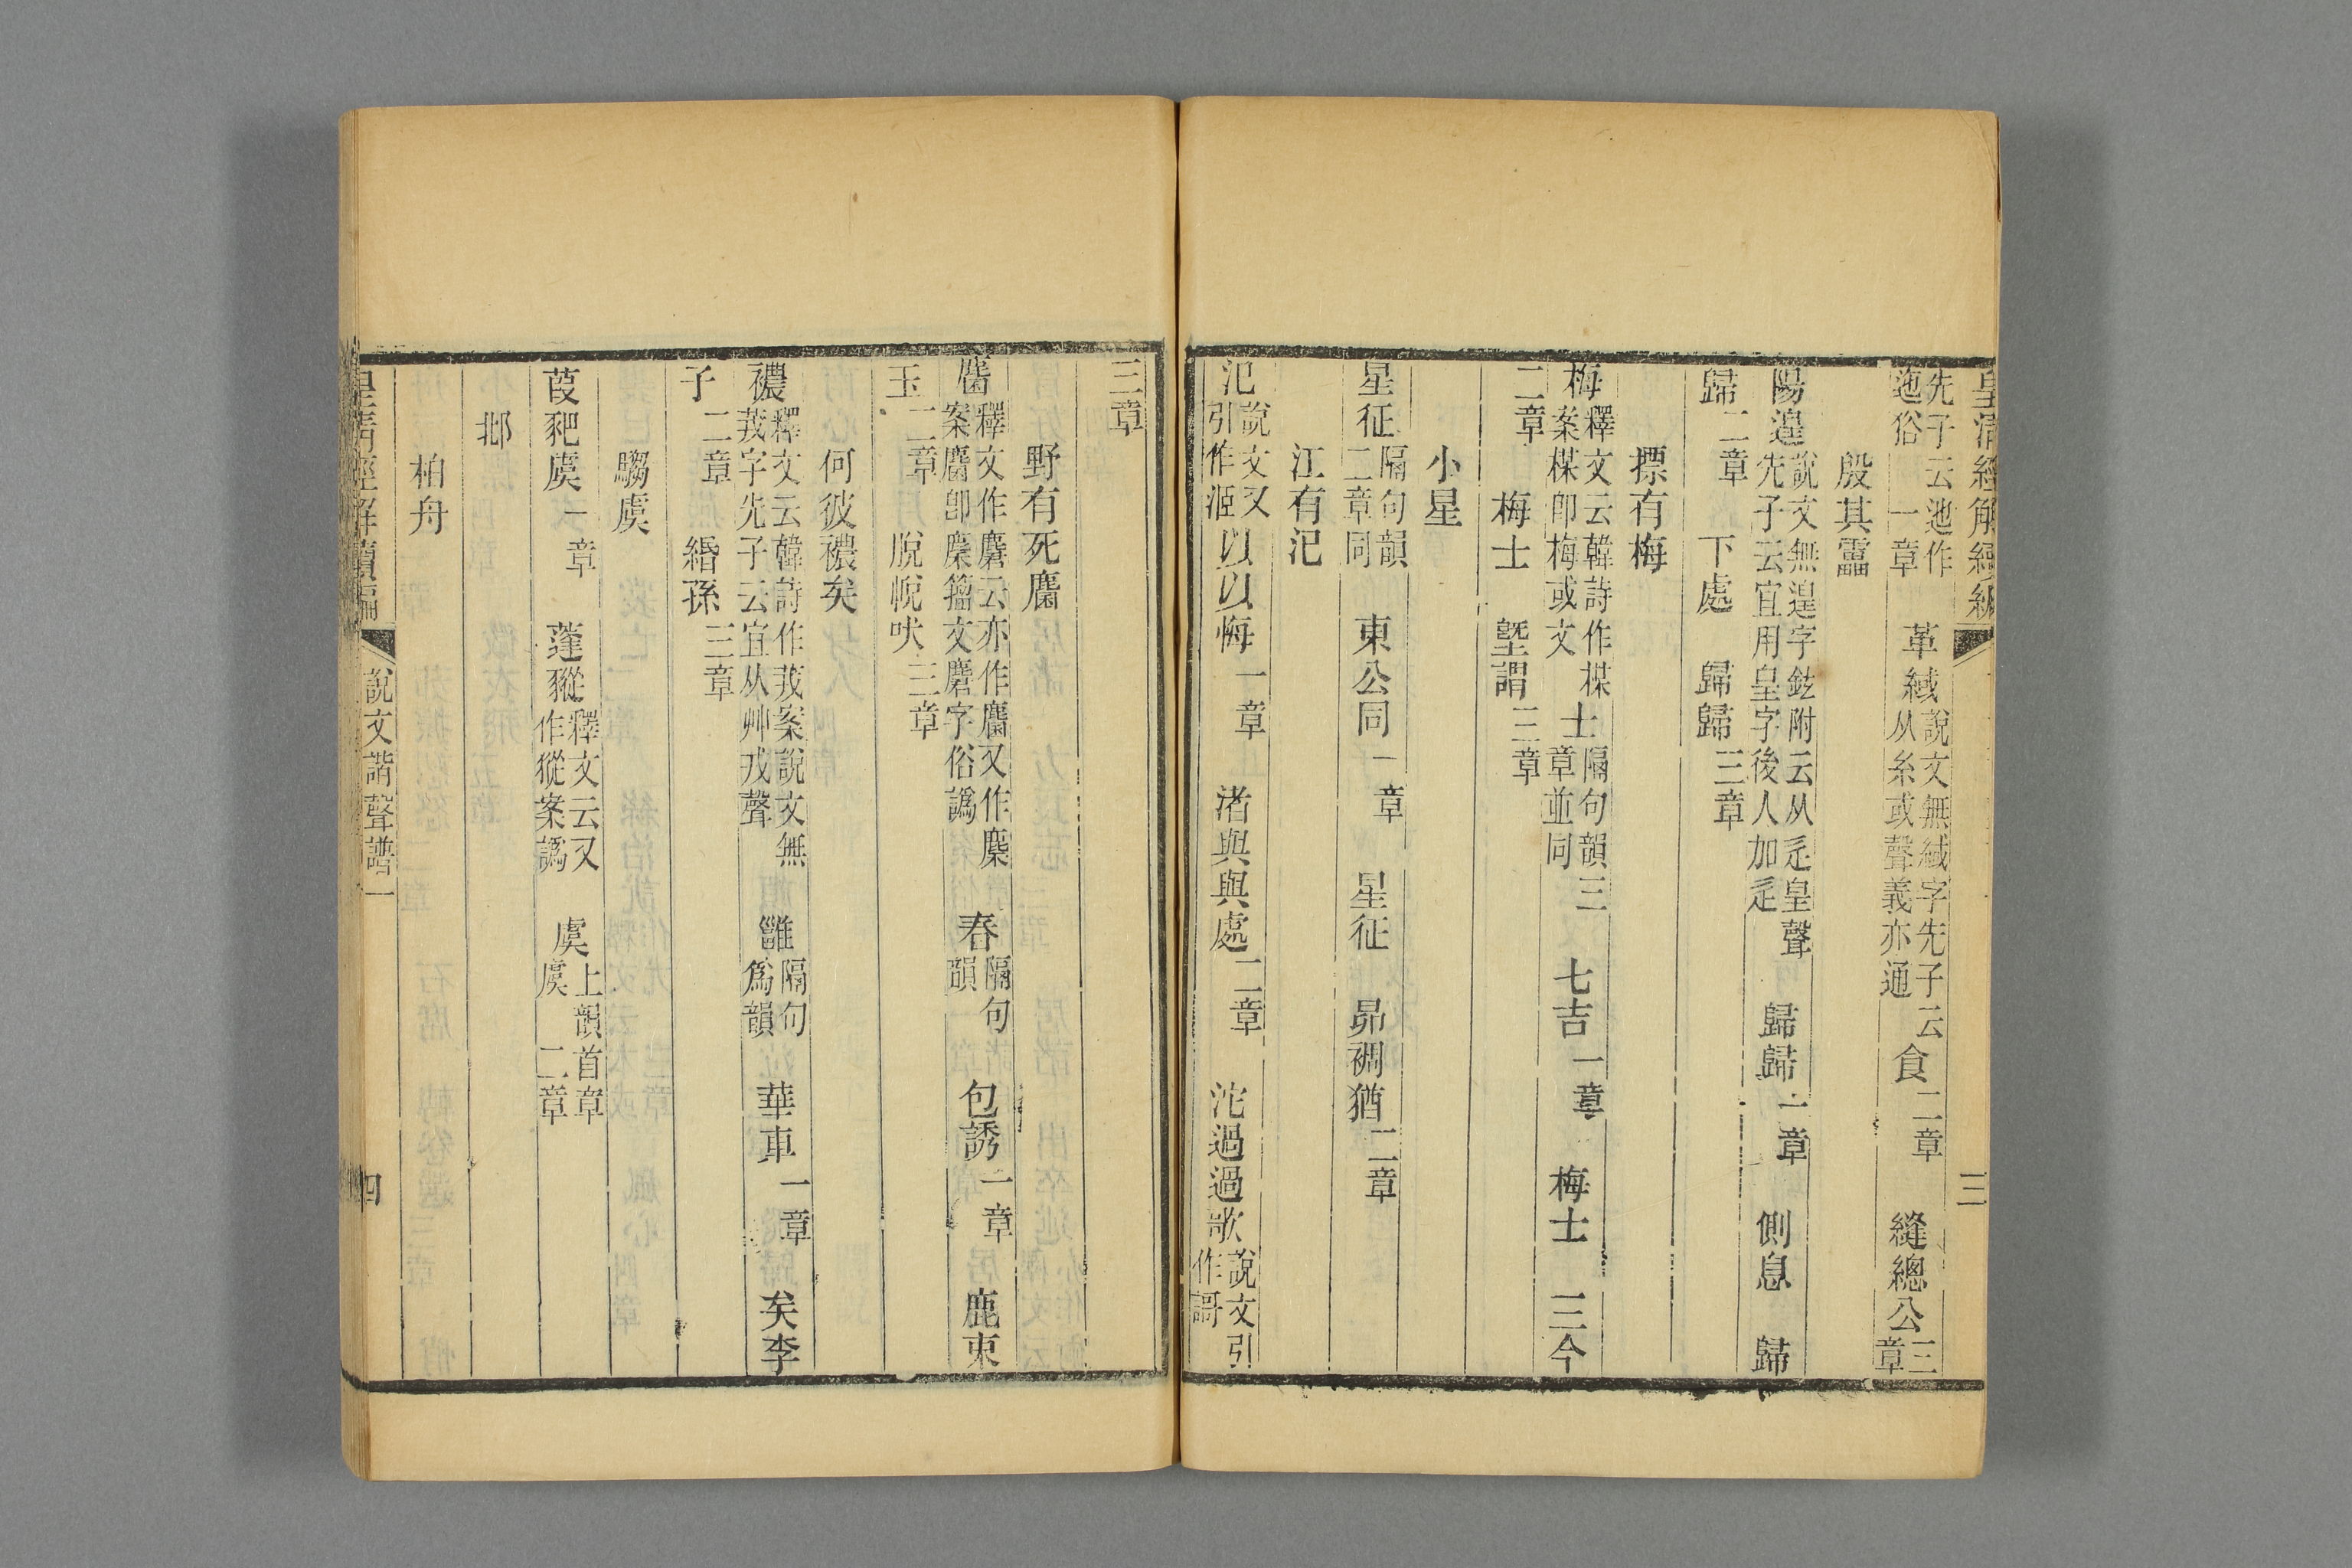 皇清經解續編
三
先子云迆作迤俗 一章 革緎 說文無緎字先子云从糸或聲義亦通 食 二章 縫總公 三章
殷其靁
陽遑 說文無遑字鉉附云从辵皇聲先子云宜用皇字後人加辵 歸歸 一章 側息 歸
歸 二章 下處 歸歸 三章
摽有梅
梅 釋文云韓詩作楳案楳卽梅或文 士 隔句韻三章並同 七吉 一章 梅士 三今
二章 梅士 塈謂 三章
小星
星征 隔句韻二章同 東公同 一章 星征 昴裯猶 二章
江有汜
汜 說文又引作洍 以以悔 一章 渚與與處 二章 沱過過歌 說文引作謌
三章
野有死麕
麕 釋文作麏云亦作麕又作麇案麕卽麇籀文麏字俗譌 春 隔句韻 包誘 一章 鹿束
玉 二章 脫帨吠 三章
何彼襛矣
襛 釋文云韓詩作茙案說文無茙字先子云宜从艸戎聲 雝 隔句爲韻 華車 一章 矣李
子 二章 緡孫 三章
騶虞
葭豝虞 一章 蓬豵 釋文云又作猣案譌 虞 上韻首章虞 二章
邶
柏舟
皇清經解續編
說文諧聲譜一
四